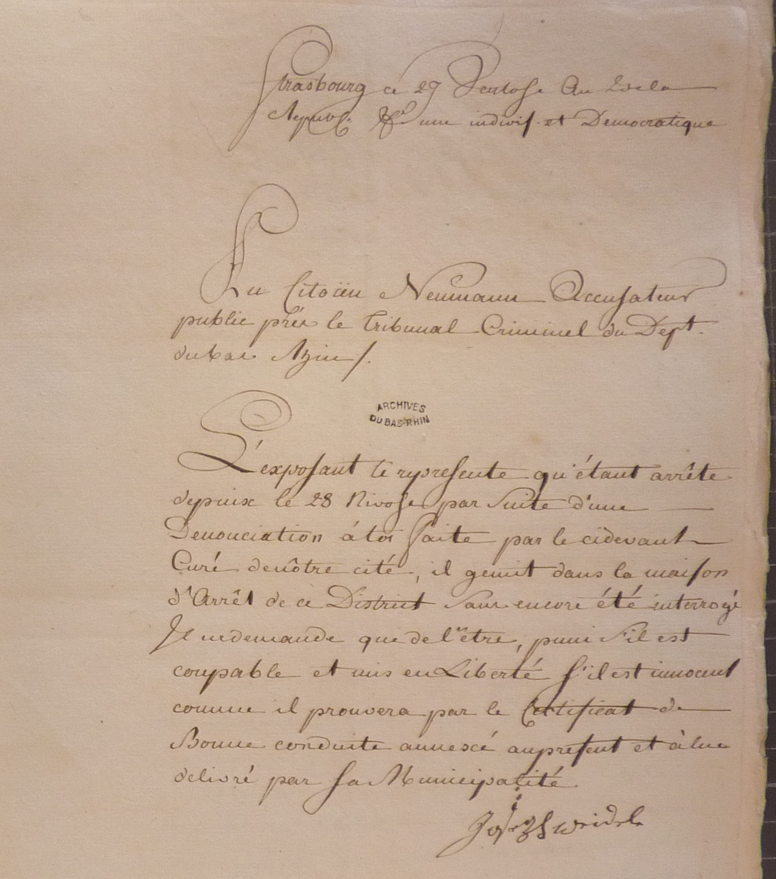 Strasbourg ce 29 Ventose An 2 de la
Republ. f. une indivis. et Democratique
Au Citoïen Neumann Accusateur
public près le Tribunal Criminel du Dept.
du bas Rhin /.
ARCHIVES
DU BAS-RHIN
L'exposant te represente qu'étant arrête
depuix le 28 Nivose par suite d'une
Denonciation à toi faite par le cidevant
Curé denôtre cité, il gemit dans la maison
d'Arrêt de ce District sans encore été interrogé
Il nedemande que del'être, puni s'il est
coupable et mis en Liberté s'il est innocent
comme il prouvera par le Certificat de
Bonne conduite annexé aupresent et à lui
delivré par sa Municipalité